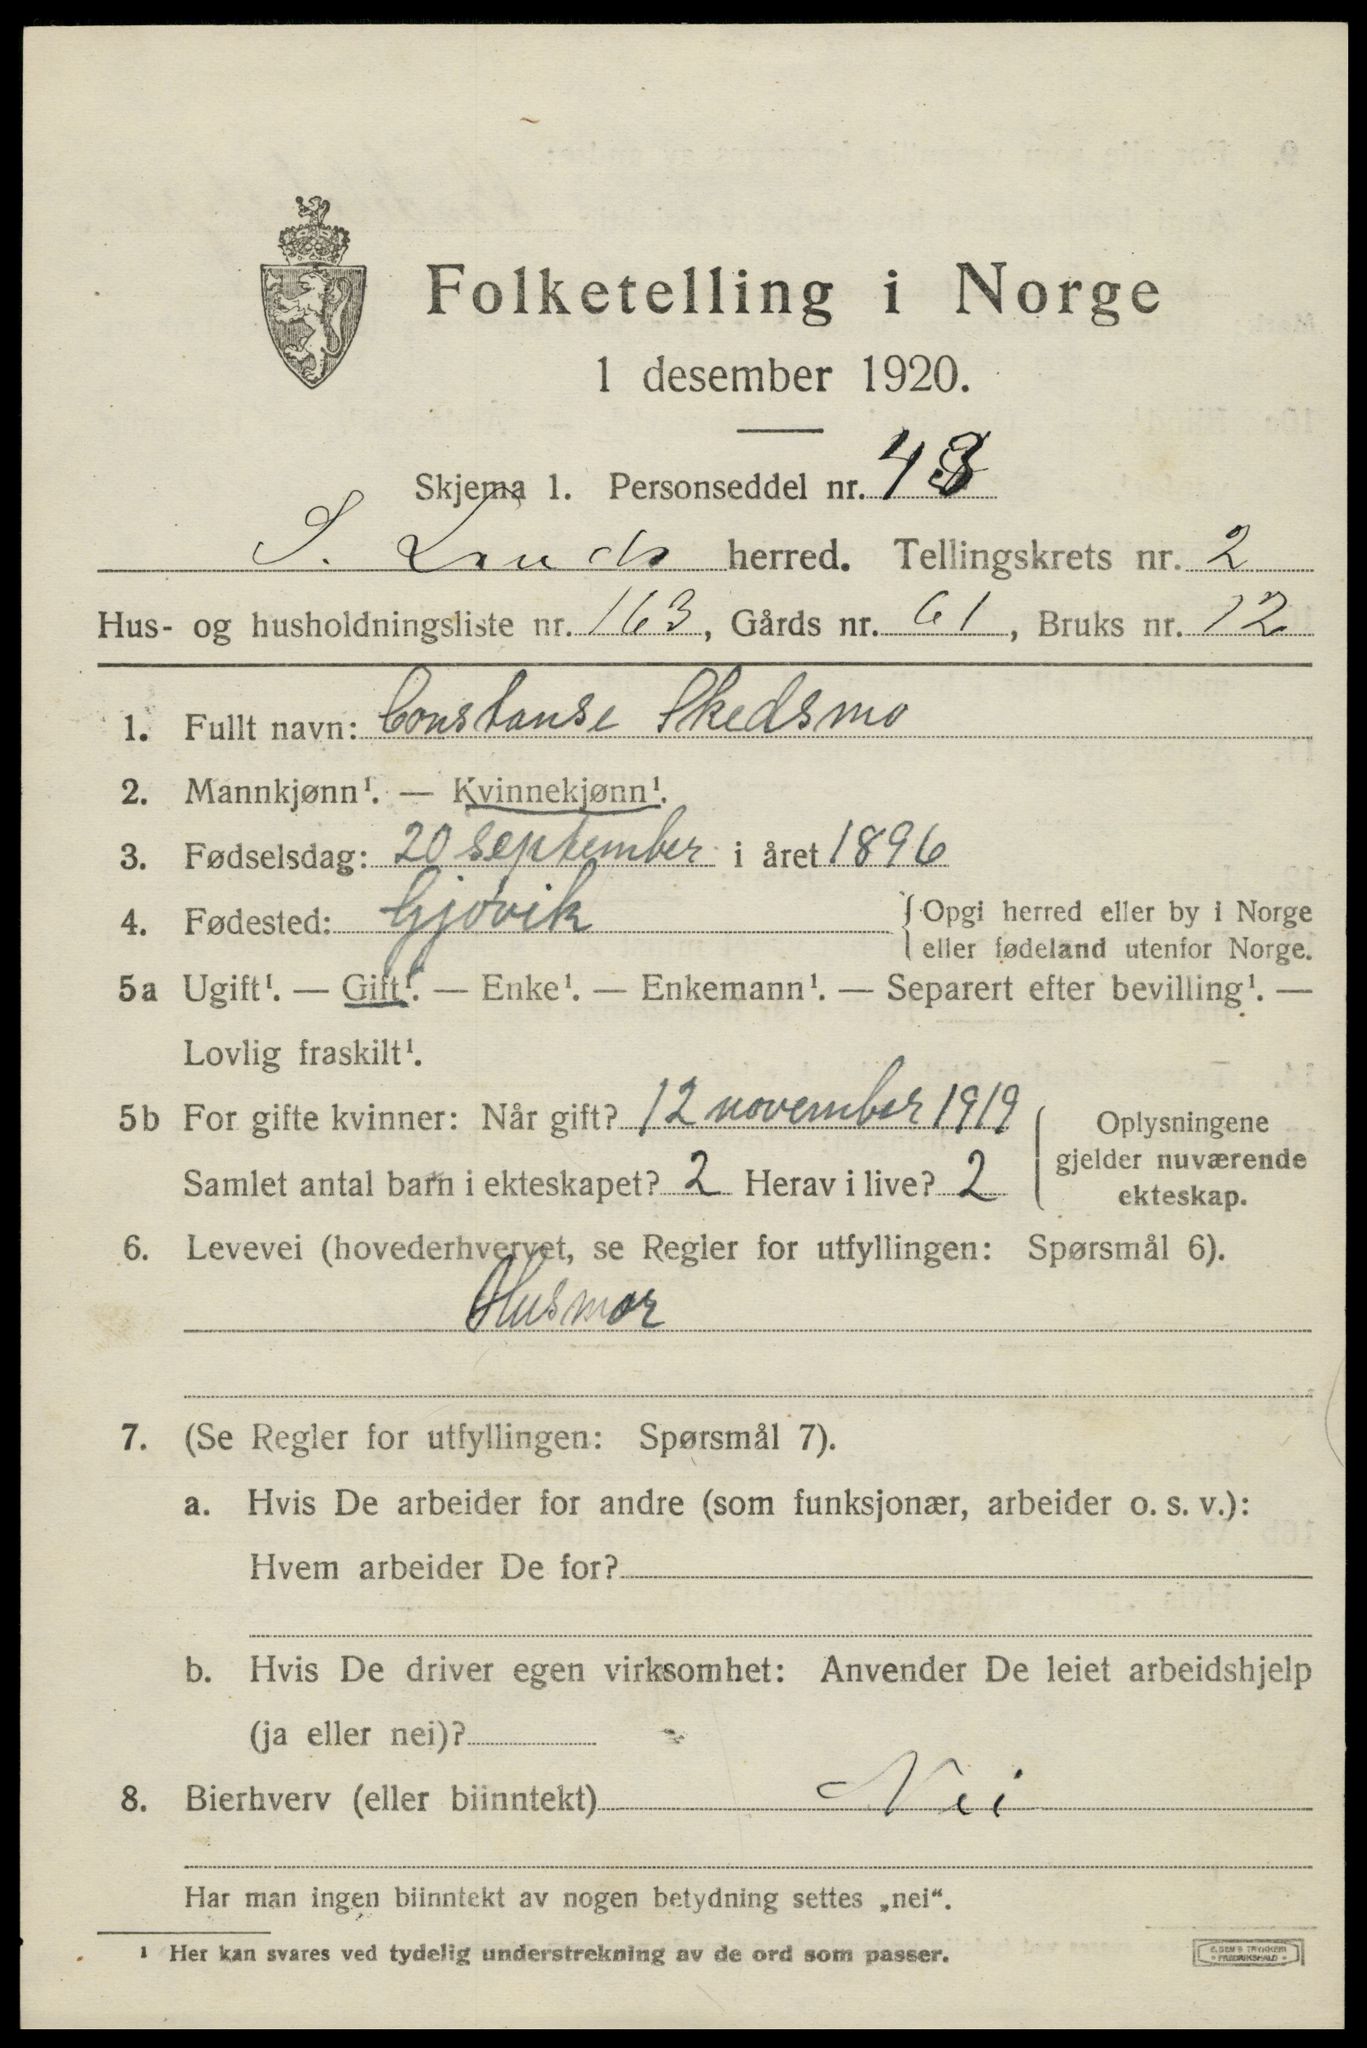 Folketelling i Norge
1 desember 1920.
Skjema 1. Personseddel nr. 48
S. Lands herred. Tellingskrets nr. 2
Hus- og husholdningsliste nr. 163, Gårds nr. 61, Bruks nr. 12
1. Fullt navn: Constanse Skedsmo
2. Mannkjønn¹. — Kvinnekjønn¹.
3. Fødselsdag: 20 september i året 1896
4. Fødested: Gjøvik { Opgi herred eller by i Norge
eller fødeland utenfor Norge.
5a Ugift¹. — Gift¹. — Enke¹. — Enkemann¹. — Separert efter bevilling¹. —
Lovlig fraskilt¹.
5b For gifte kvinner: Når gift? 12 november 1919
Samlet antal barn i ekteskapet? 2 Herav i live? 2
Oplysningene
gjelder nuværende
ekteskap.
6. Levevei (hovederhvervet, se Regler for utfyllingen: Spørsmål 6).
Husmor
7. (Se Regler for utfyllingen: Spørsmål 7).
a. Hvis De arbeider for andre (som funksjonær, arbeider o. s. v.):
Hvem arbeider De for?
b. Hvis De driver egen virksomhet: Anvender De leiet arbeidshjelp
(ja eller nei)?
8. Bierhverv (eller biinntekt) Nei
Har man ingen biinntekt av nogen betydning settes „nei“.
¹ Her kan svares ved tydelig understrekning av de ord som passer.